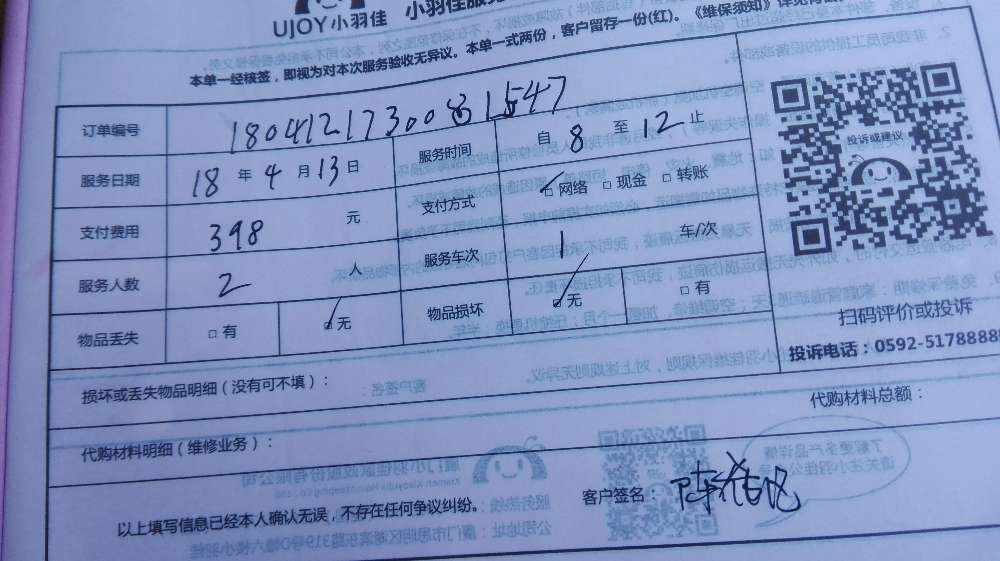 UJOY小羽佳 小羽佳服
本单一经核签，即视为对本次服务验收无异议。本单一式两份，客户留存一份(红)。《维保须知》详见背
订单编号 180412173008 1547
服务日期 18 年 4 月 13 日 服务时间 自 8 至 12 止
支付费用 398 元 支付方式 ☑网络 □现金 □转账
服务人数 2 人 服务车次 1 车/次
物品丢失 □有 ☑无 物品损坏 ☑无 □有
投诉或建议
扫码评价或投诉
投诉电话：0592-5178888
损坏或丢失物品明细（没有可不填）：
代购材料明细（维修业务）： 代购材料总额：
以上填写信息已经本人确认无误，不存在任何争议纠纷。 客户签名：